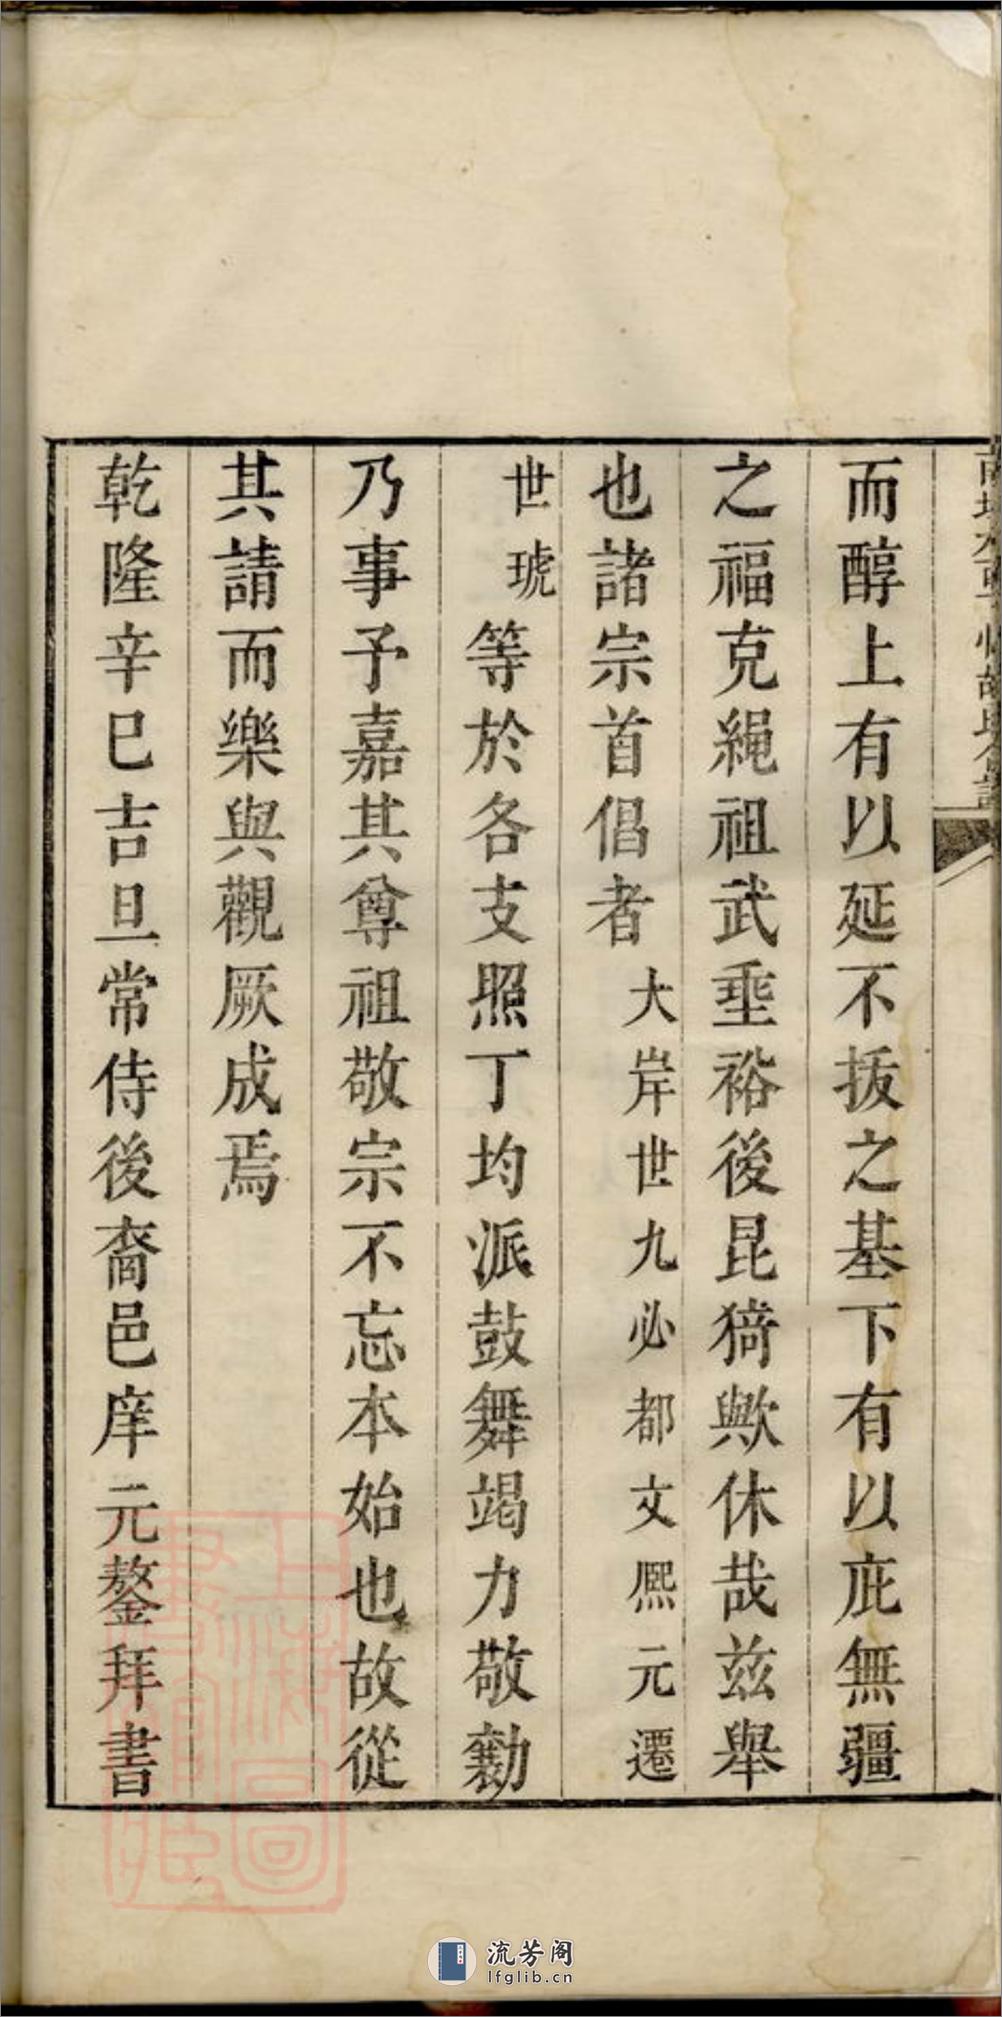 而醇上有以延不拔之基下有以庇無疆
之福克繩祖武垂裕後昆猗歟休哉茲舉
也諸宗首倡者大岸世九必都文熈元遷
世琥等於各支照丁均派鼓舞竭力敬勷
乃事予嘉其尊祖敬宗不忘本始也故從
其請而樂與觀厥成焉
乾隆辛巳吉旦常侍後裔邑庠元鏊拜書
上海圖書館藏
流芳阁
lfglib.cn